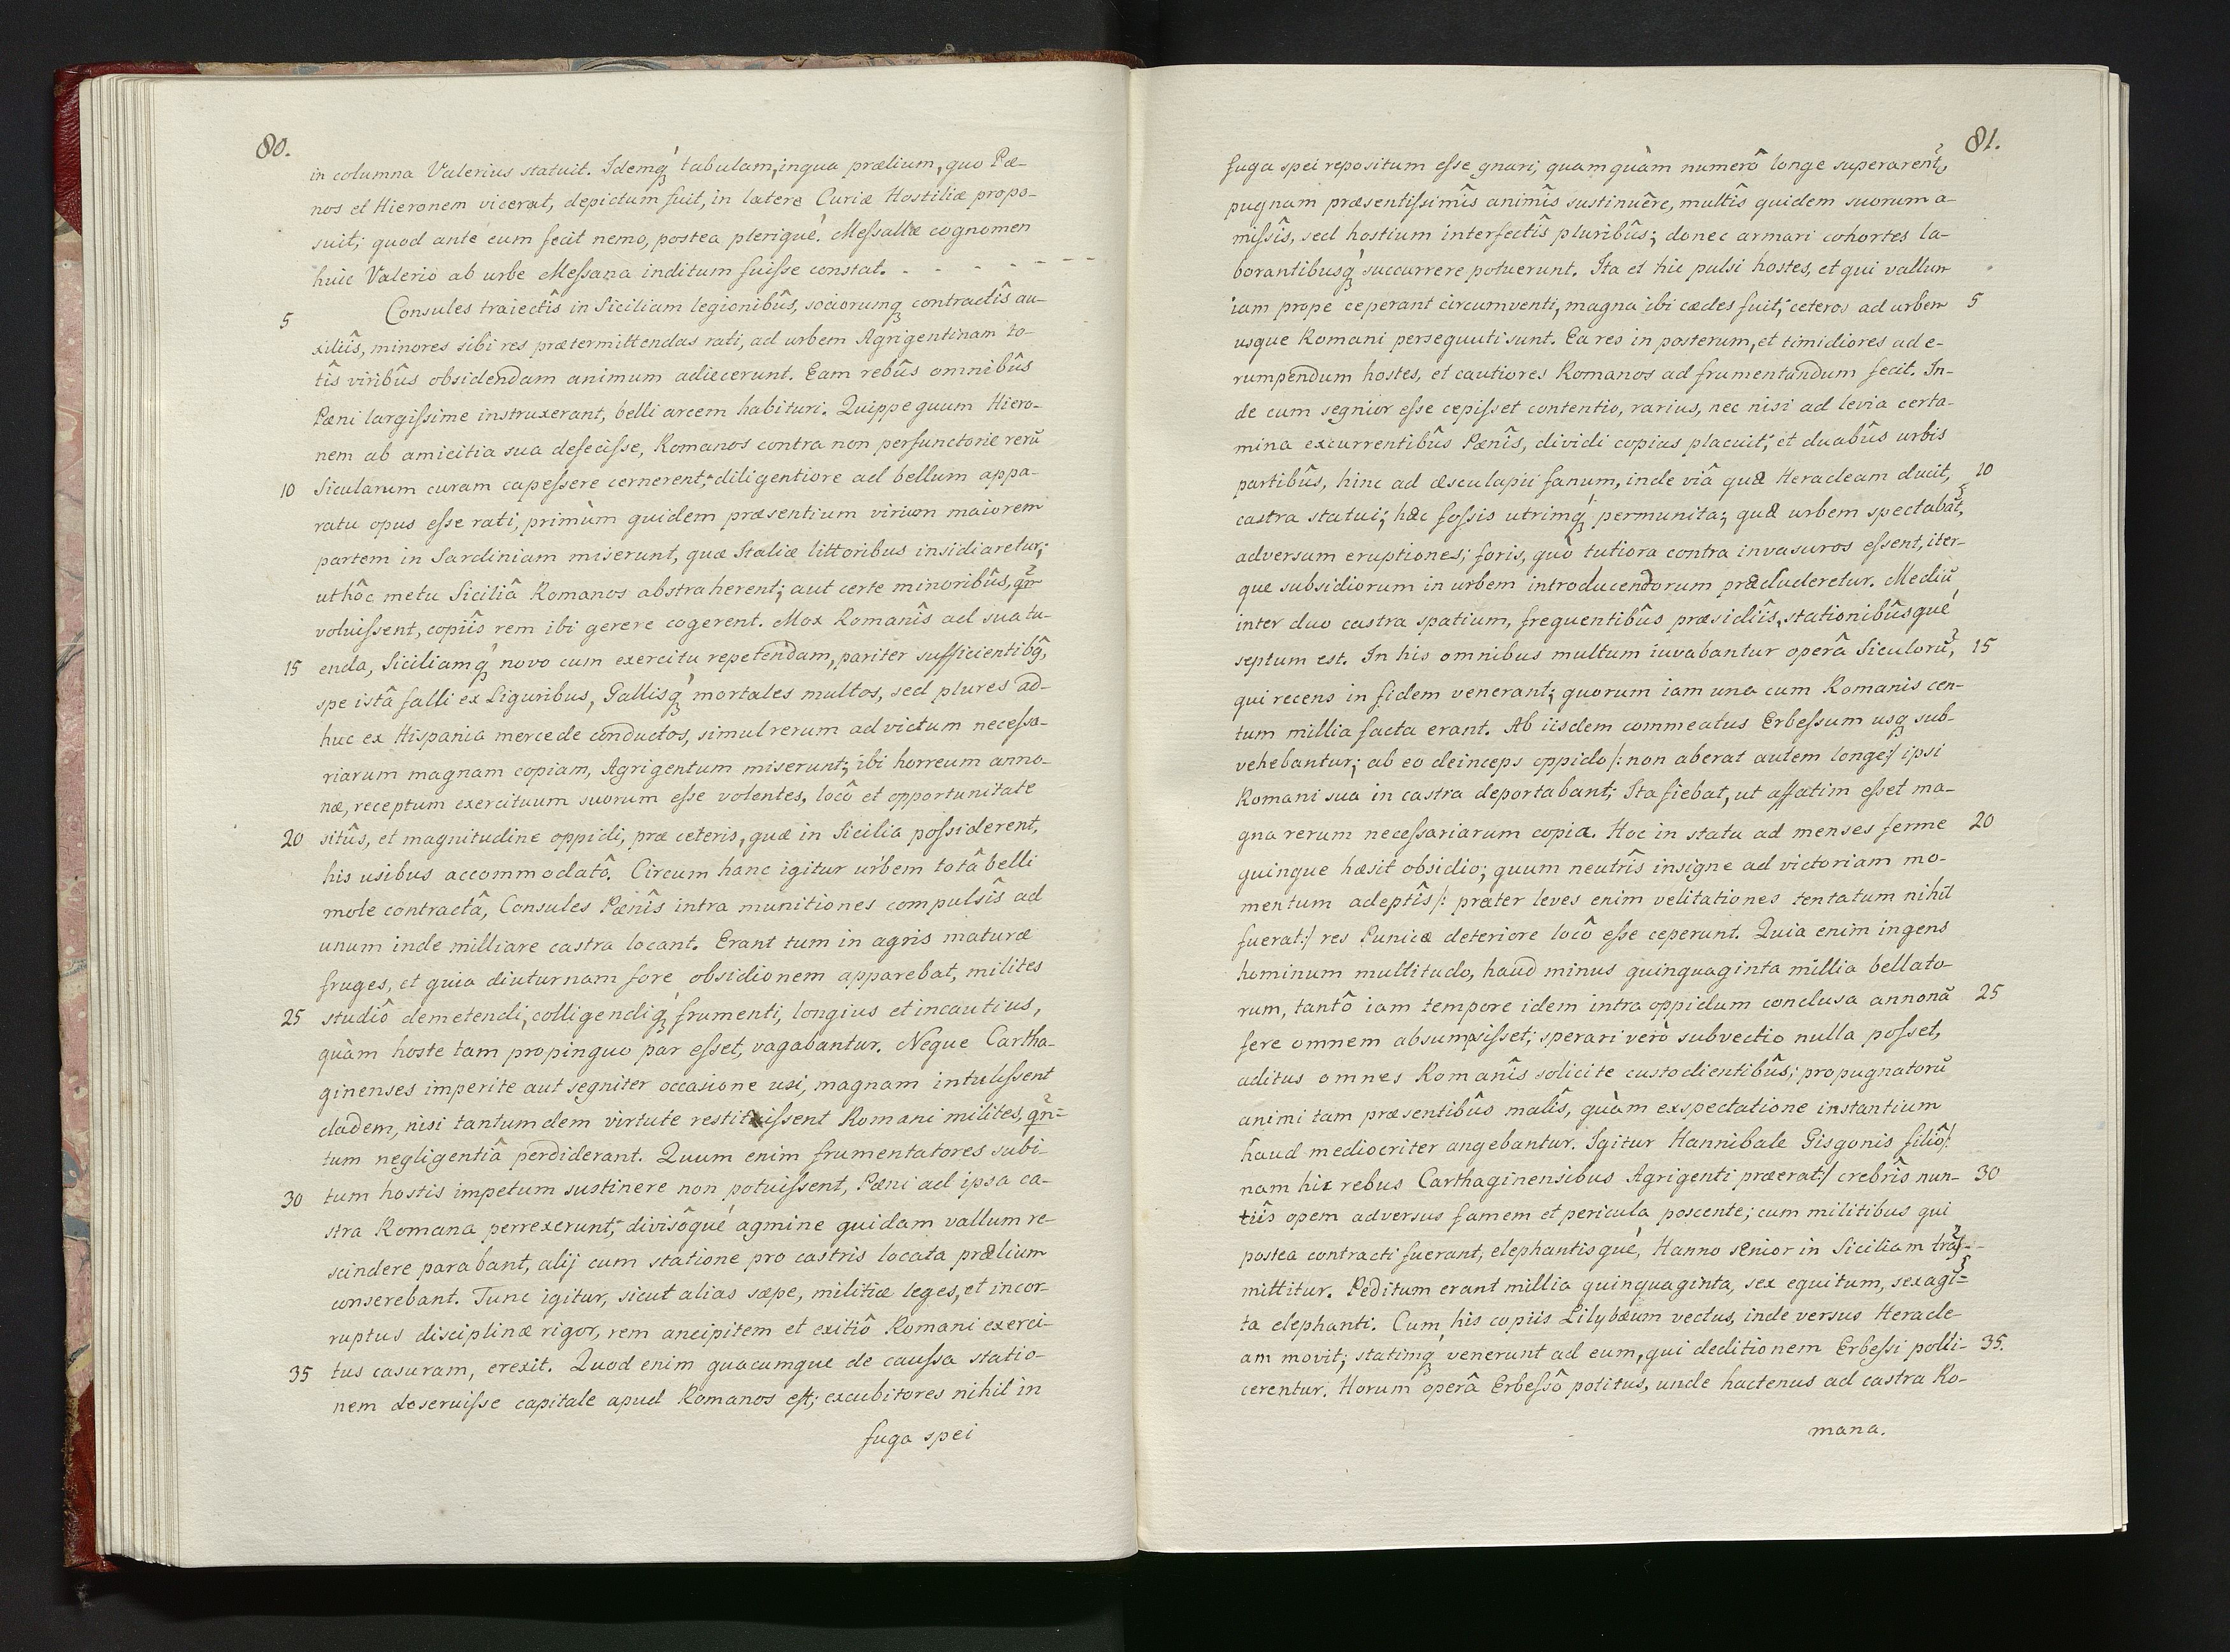 80.
in columna Valerius statuit. Idemq́ꝫ tabulam, in qua prælium, quo Pæ-
nos et Hieronem vicerat, depictum fuit, in latere Curiæ Hostiliæ propo-
suit; quod ante eum fecit nemo, postea plerique. Meſsallæ cognomen
huic Valerio ab urbe Meſsana inditum fuiſse constat. - - - - - - -
5 Consules traiectîs in Siciliam legionibûs, sociorumqꝫ contractîs au-
xiliîs, minores sibi res prætermittendas rati, ad urbem Agrigentinam to-
tîs viribûs obsidendam animum adiecerunt. Eam rebûs omnibûs
Pæni largiſsime instruxerant, belli arcem habituri. Quippe quum Hiero-
nem ab amicitia sua defeciſse, Romanos contra non perfunctorie rerũ
10 Sicularum curam capeſsere cernerent; diligentiore ad bellum appa-
ratu opus eſse rati, primùm quidem præsentium virium maiorem
partem in Sardiniam miserunt, quæ Italiæ littoribus insidiaretur;
ut hôc metu Siciliâ Romanos abstraherent; aut certe minoribûs, qm̃
voluiſsent, copiîs rem ibi gerere cogerent. Mox Romanîs ad sua tu-
15 enda, Siciliamq́ꝫ novo cum exercitu repetendam, pariter sufficientibꝫ,
spe istâ falli ex Liguribus, Gallisq́ꝫ mortales multos, sed plures ad-
huc ex Hispania mercede conductos, simul rerum ad victum neceſsa-
riarum magnam copiam, Agrigentum miserunt; ibi horreum anno-
næ, receptum exercituum suorum eſse volentes, locô et opportunitate
20 sitûs, et magnitudine oppidi, præ ceteris, quæ in Sicilia poſsiderent,
his usibus accommodatô. Circum hanc igitur urbem totâ belli
mole contractâ, Consules Pænîs intra munitiones compulsîs ad
unum inde milliare castra locant. Erant tum in agris maturæ
fruges, et quia diuturnam fore obsidionem apparebat, milites
25 studiô demetendi, colligendiq́ꝫ frumenti, longius et incautius,
quàm hoste tam propinquo par eſset, vagabantur. Neque Cartha-
ginenses imperite aut segniter occasione usi, magnam intuliſsent
cladem, nisi tantumdem virtute restituiſsent Romani milites, qñ-
tum negligentiâ perdiderant. Quum enim frumentatores subi-
30 tum hostis impetum sustinere non potuiſsent, Pæni ad ipsa ca-
stra Romana perrexerunt; divisôque agmine quidam vallum re-
scindere parabant, alij cum statione pro castris locata prælium
conserebant. Tunc igitur, sicut alias sæpe, militiæ leges, et incor-
ruptus disciplinæ rigor, rem ancipitem et exitiô Romani exerci-
35 tus casuram, erexit. Quod enim quacumque de cauſsa statio-
nem deseruiſse capitale apud Romanos eſt; excubitores nihil in
fuga spei
81.
fuga spei repositum eſse gnari; quamquàm numerô longe superarent̃,
pugnam præsentiſsimîs animîs sustinuêre, multîs quidem suorum a-
miſsîs, sed hostium interfectîs pluribûs; donec armari cohortes la-
borantibusq́ꝫ succurrere potuerunt. Ita et hic pulsi hostes, et qui vallum
iam prope ceperant circumventi, magna ibi cædes fuit; ceteros ad urbem 5
usque Romani persequuti sunt. Ea res in posterum, et timidiores ad e-
rumpendum hostes, et cautiores Romanos ad frumentandum fecit. In-
de cum segnior eſse cepiſset contentio, rarius, nec nisi ad levia certa-
mina excurrentibûs Pænîs, dividi copias placuit; et duabûs urbis
partibûs, hinc ad æsculapii fanum, inde viâ quæ Heracleam ducit, 10
castra statui; hæc foſsis utrimq́ꝫ permunita; quæ urbem spectabãt,
adversum eruptiones; foris, quò tutiora contra invasuros eſsent, iter-
que subsidiorum in urbem introducendorum præcluderetur. Mediũ
inter duo castra spatium, frequentibûs præsidiîs, stationibûsque
septum est. In his omnibus multum iuvabantur operâ Siculorũ, 15
qui recens in fidem venerant; quorum iam una cum Romanis cen-
tum millia facta erant. Ab iisdem commeatus Erbeſsum usqꝫ sub-
vehebantur; ab eo deinceps oppido /: non aberat autem longe :/ ipsi
Romani sua in castra deportabant; Ita fiebat, ut affatim eſset ma-
gna rerum neceſsariarum copia. Hoc in statu ad menses ferme 20
quinque hæsit obsidio; quum neutrîs insigne ad victoriam mo-
mentum adeptîs /: præter leves enim velitationes tentatum nihil
fuerat :/ res Punicæ deteriore locô eſse ceperunt. Quia enim ingens
hominum multitudo, haud minus quinquaginta millia bellato-
rum, tantô iam tempore idem intra oppidum conclusa annonã 25
fere omnem absumpsiſset; sperari verò subvectio nulla poſset,
aditus omnes Romanîs solicite custodientibûs; propugnatorũ
animi tam præsentibûs malîs, quàm exspectatione instantium
haud mediocriter angebantur. Igitur Hannibale Gisgonis filiô /:
nam hic rebus Carthaginensibus Agrigenti præerat :/ crebrîs nun- 30
tiîs opem adversus famem et pericula poscente; cum militibus qui
postea contracti fuerant, elephantisque, Hanno senior in Siciliam trãs-
mittitur. Peditum erant millia quinquaginta, sex equitum, sexagĩ-
ta elephanti. Cum his copiis Lilybæum vectus, inde versus Heracle-
am movit; statimq́ꝫ venerunt ad eum, qui deditionem Erbeſsi polli- 35.
cerentur. Horum operâ Erbeſsô potitus, unde hactenus ad castra Ro-
mana.